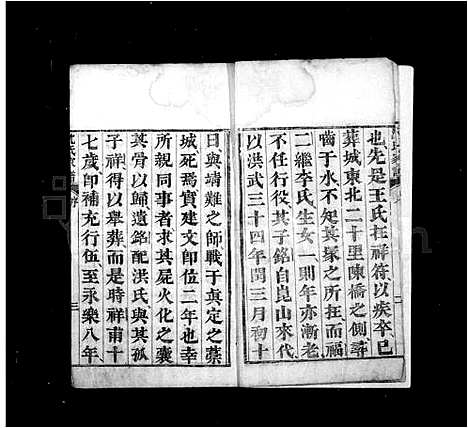 也先是王氏在祥符以疾卒已
葬城東北二十里陳橋之側尋
嚙于水不知其塚之所在而福
二繼李氏生女一則年亦漸老
不任行役其子銘自崑山來代
以洪武三十四年閏三月初十
日與靖難之師戰于真定之藁
城死焉實建文即位二年也幸
所親同事者求其屍火化之囊
其骨以歸遺銘配洪氏與其孤
子祥得以舉葬而是時祥甫十
七歲即補充行伍至永樂八年